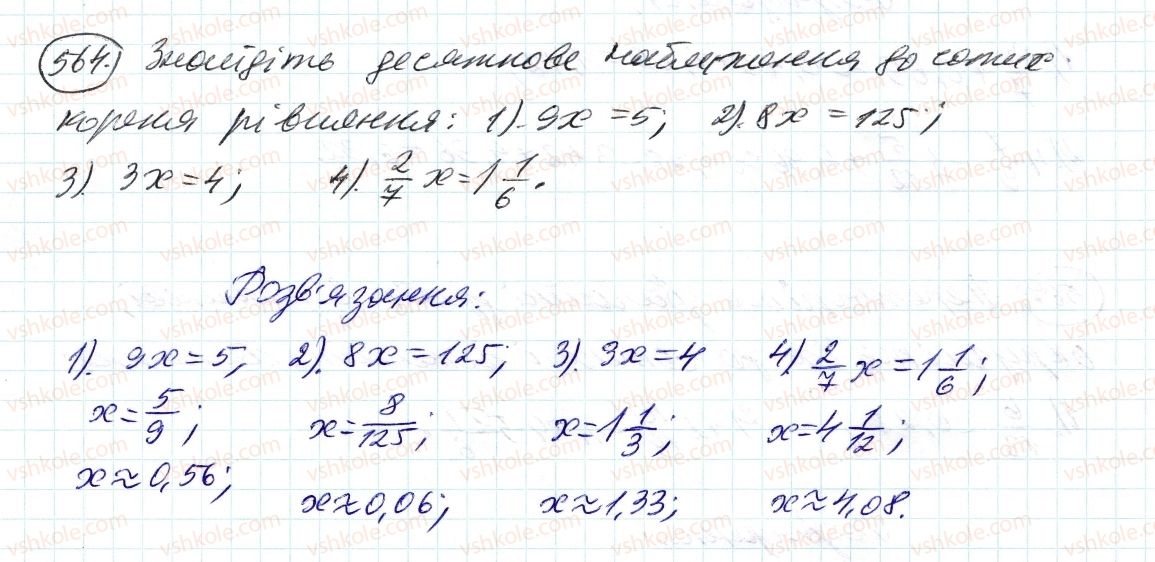 564. Знайдіть десяткове наближення до сотих
кореня рівняння: 1). 9x = 5; 2). 8x = 125;
3). 3x = 4; 4). 2/7 x = 1 1/6.
Розв'язання:
1). 9x = 5; 2). 8x = 125; 3). 3x = 4 4). 2/7 x = 1 1/6;
x = 5/9; x = 8/125; x = 1 1/3; x = 4 1/12;
x ≈ 0,56; x ≈ 0,06; x ≈ 1,33; x ≈ 4,08.
vshkole.com